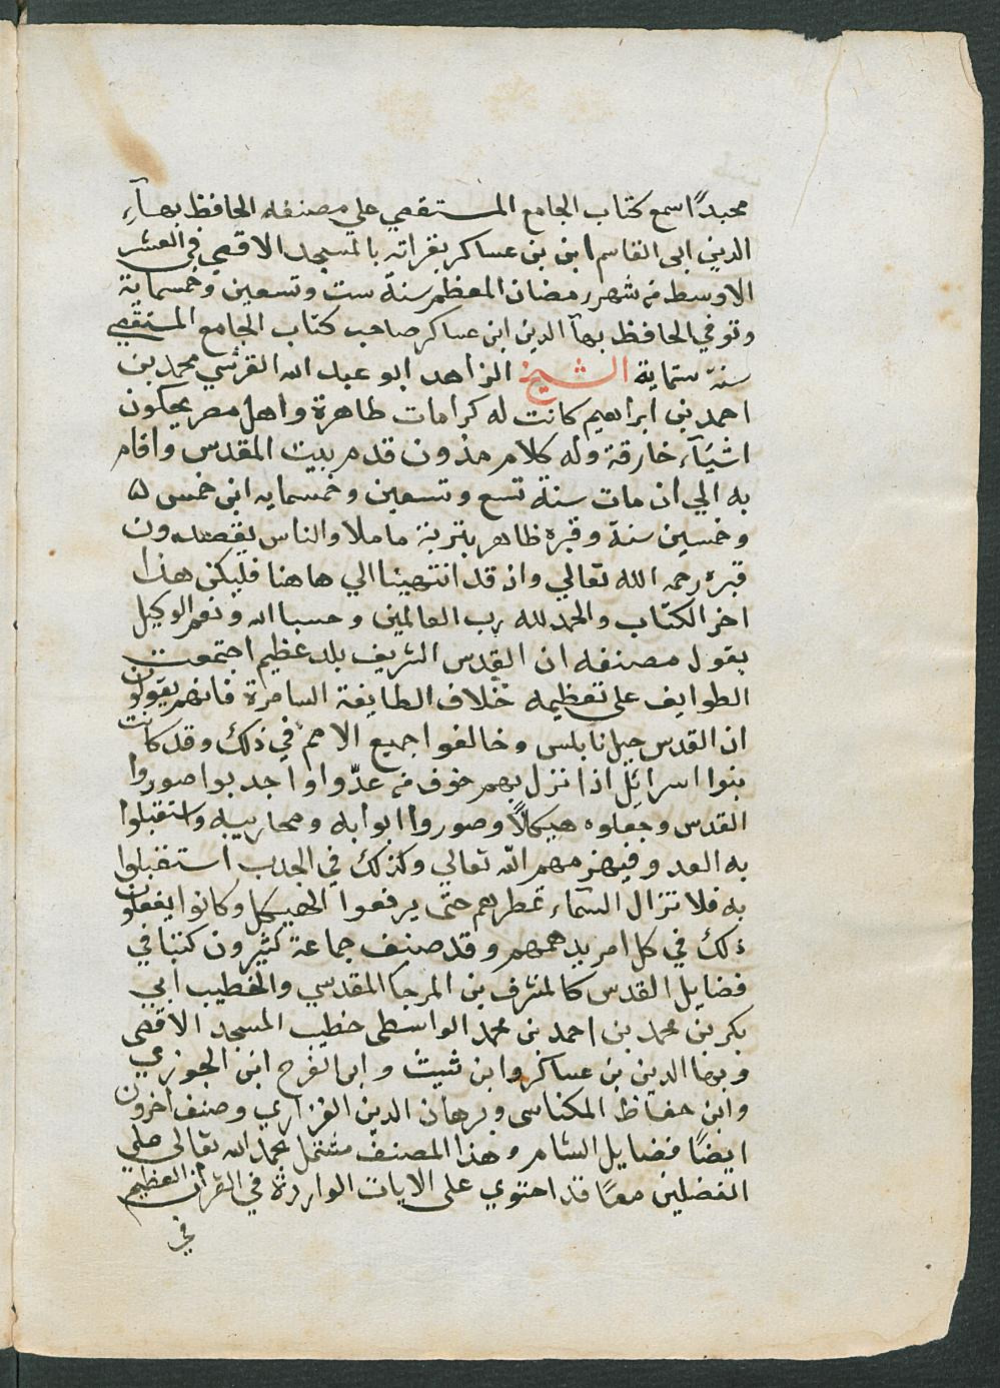 مجيداً سمع كتاب الجامع المستقصي علي مصنفه الحافظ بهآء
الدين ابى القاسم ابن بن عساكر بقراته بالمسجد الاقصي في العشر
الاوسط من شهر رمضان المعظم سنة ست وتسعين وخمسماية
وتوفي الحافظ بهآ الدين ابن عساكر صاحب كتاب الجامع المستقصي
سنة ستماية الشيخ الزاهد ابو عبد الله القرشي محمد بن
احمد بن ابراهيم كانت له كرامات طاهرة واهل مصر يحكون
اشيآء خارقة وله كلام مدون قدم بيت المقدس واقام
به الي ان مات سنة تسع وتسعين وخمسمايه ابن خمس
وخمسين سنة وقبره ظاهر بتربة ماملا والناس يقصدون
قبره رحمه الله تعالي واذ قد انتهينا الي هاهنا فليكن هذا
اخر الكتاب والحمد لله رب العالمين وحسبا الله ونعم الوكيل
يقول مصنفه ان القدس الشريف بلد عظيم اجتمعت
الطوايف على تعظيمه خلاف الطايفة السامرة فانهم يقولون
ان القدس جبل نابلس وخالفوا جميع الامم في ذلك وقد كانت
بنوا اسرائل اذا نزل بهم خوف من عدّو او اجدبوا صوروا
القدس وجعلوه هيكلاً وصوروا ابوابه ومحاريبه واستقبلوا
به العدو فيهزمهم الله تعالي وكذلك في الجدب استقبلوا
به فلا تزال السمآء تمطرهم حتى يرفعوا الهيكل وكانوا يفعلون
ذلك في كل امر يدهمهم وقد صنف جماعة كثيرون كتبا في
فضايل القدس كالمشرف بن المرجا المقدسي والخطيب ابي
بكر بن محمد بن احمد بن محمد الواسطى خطيب المسجد الاقصى
وبها الدين بن عساكر وابن شيث وابى الفرج ابن الجوزي
وابن حفاظ المكناسى وبرهان الدين الفزاري وصنف اخرون
ايضًا فضايل الشام وهذا المصنف مشتمل بحمد الله تعالى على
الفضلين معًا قد احتوي على الايات الواردة في القرآن العظيم
في